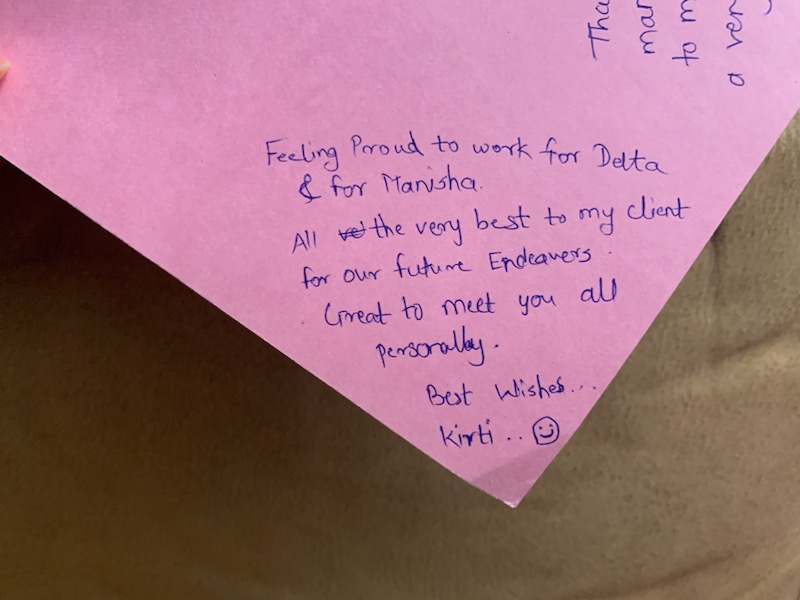 Feeling Proud to work for Delta
& for Manisha.
All the very best to my client
for our future Endeavers.
Great to meet you all
personally.
Best Wishes...
Kirti.. ☺
Tha
mar
to m
a ver